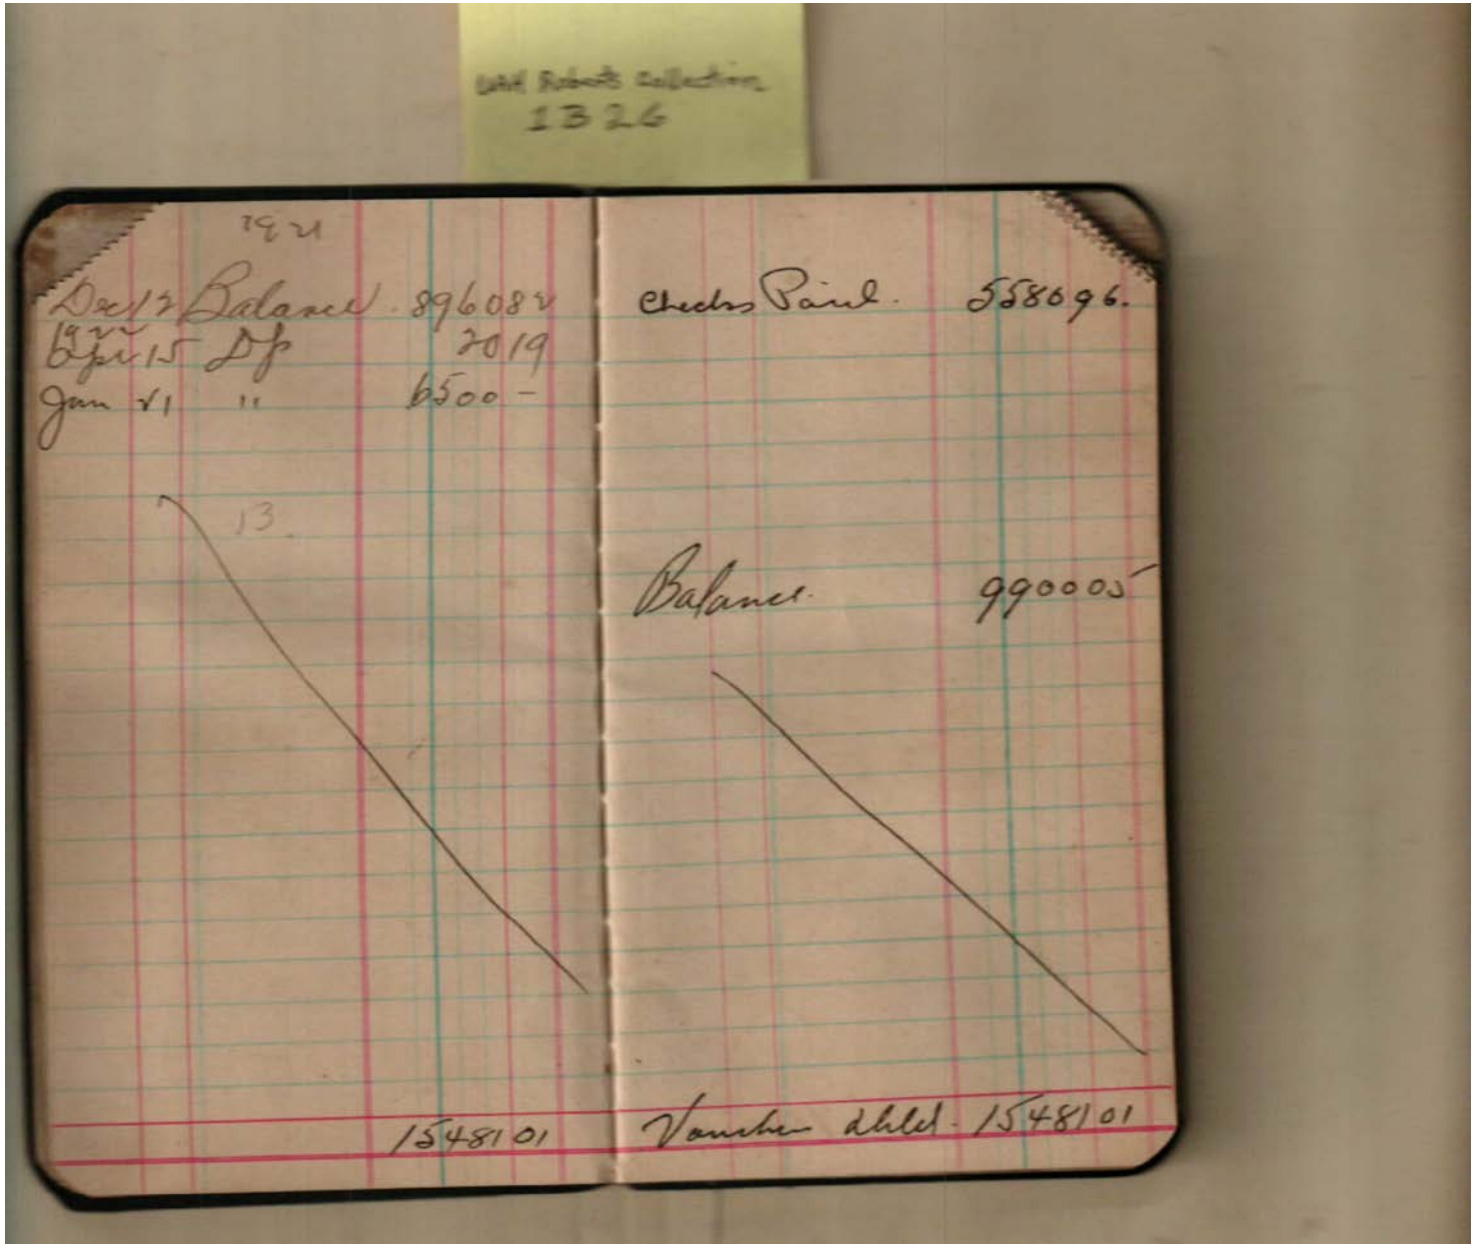 UAH Roberts Collection
1B26
1921
Dec 12 Balance 8960 82
1922
Apr 15 Dp 20 19
Jun 21 " 6500 –
13
15481 01
Checks Paid. 5580 96.
Balance. 9900 05
15481 01